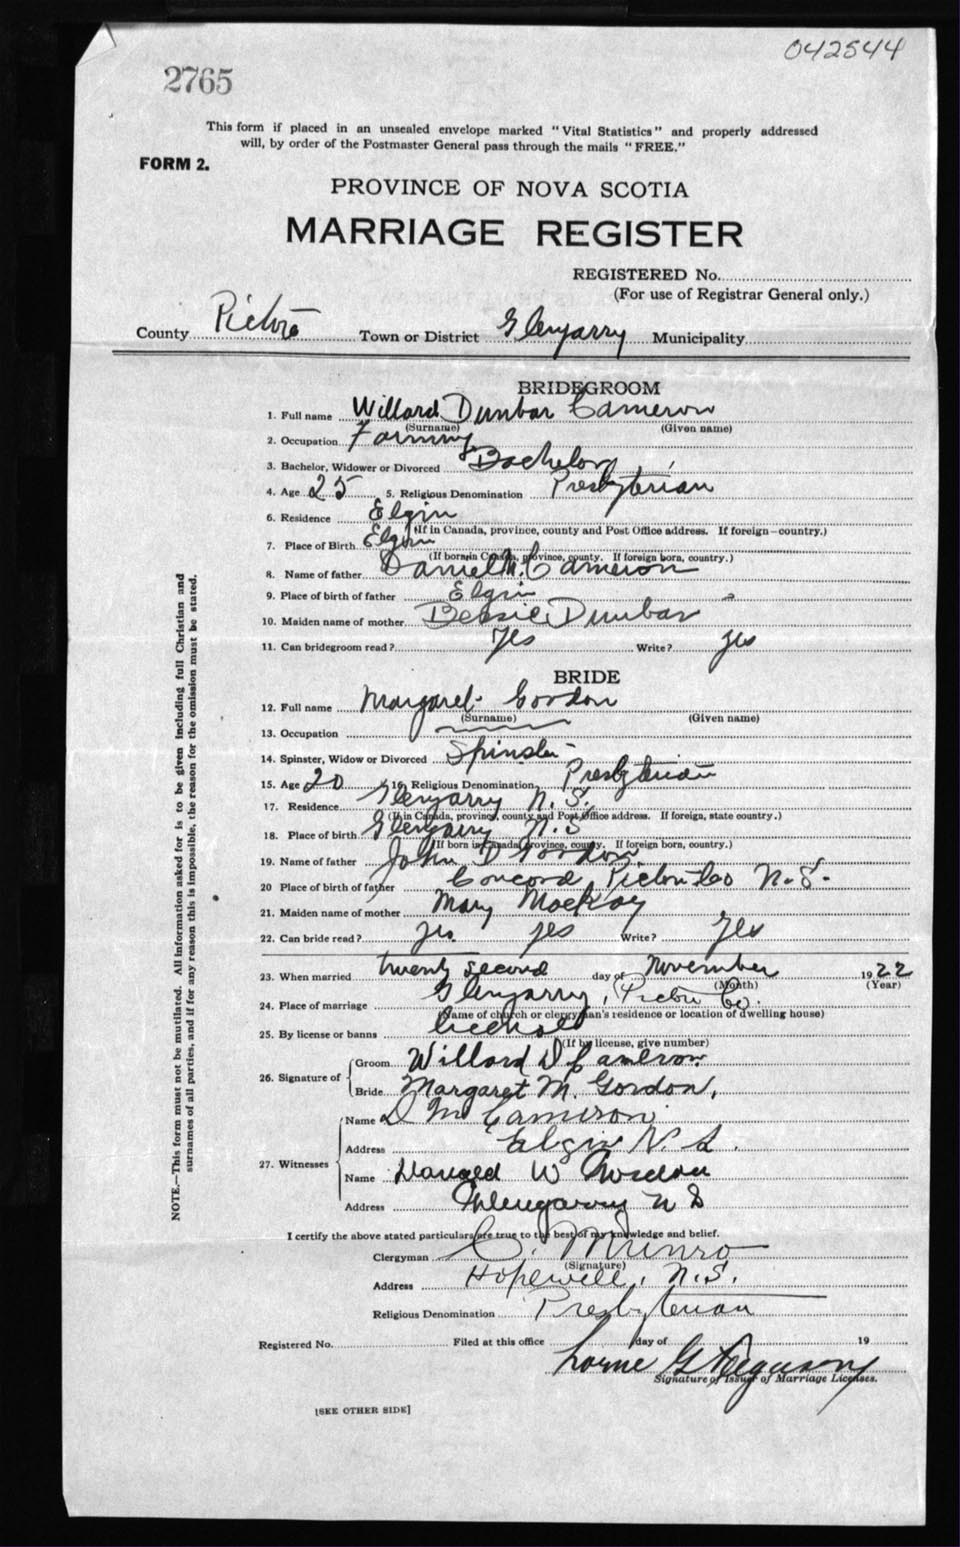 042544
2765
This form if placed in an unsealed envelope marked "Vital Statistics" and properly addressed
will, by order of the Postmaster General pass through the mails "FREE."
FORM 2.
PROVINCE OF NOVA SCOTIA
MARRIAGE REGISTER
REGISTERED No.
(For use of Registrar General only.)
County Pictou Town or District Glengarry Municipality
BRIDEGROOM
1. Full name Willard Dunbar Cameron
(Surname) (Given name)
2. Occupation Farming
3. Bachelor, Widower or Divorced Bachelor
4. Age 25 5. Religious Denomination Presbyterian
6. Residence Elgin
(If in Canada, province, county and Post Office address. If foreign—country.)
7. Place of Birth Elgin
(If born in Canada, province, county. If foreign born, country.)
8. Name of father Daniel M. Cameron
9. Place of birth of father Elgin
10. Maiden name of mother Bessie Dunbar
11. Can bridegroom read? yes Write? yes
BRIDE
12. Full name Margaret Gordon
(Surname) (Given name)
13. Occupation
14. Spinster, Widow or Divorced Spinster
15. Age 20 16. Religious Denomination Presbyterian
17. Residence Glengarry N. S.
(If in Canada, province, county and Post Office address. If foreign, state country.)
18. Place of birth Glengarry N. S
(If born in Canada, province, county. If foreign born, country.)
19. Name of father John D Gordon
20 Place of birth of father Concord Pictou Co N. S.
21. Maiden name of mother Mary MacKay
22. Can bride read? yes yes Write? yes
23. When married twenty second day of November 1922
(Month) (Year)
24. Place of marriage Glengarry, Pictou Co.
(Name of church or clergyman's residence or location of dwelling house)
25. By license or banns license
(If by license, give number)
26. Signature of
Groom Willard D Cameron
Bride Margaret M. Gordon.
27. Witnesses
Name D M Cameron
Address Elgin N. S.
Name Donald W Gordon
Address Glengarry N S
I certify the above stated particulars are true to the best of my knowledge and belief.
Clergyman C. Munro
(Signature)
Address Hopewell, N.S.
Religious Denomination Presbyterian
Registered No. Filed at this office day of 19
Lorne G Ferguson
Signature of Issuer of Marriage Licenses.
[SEE OTHER SIDE]
NOTE.—This form must not be mutilated. All information asked for is to be given including full Christian and
surnames of all parties, and if for any reason this is impossible, the reason for the omission must be stated.